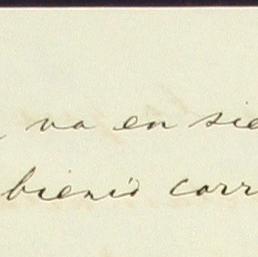 va en sie
bienid corr